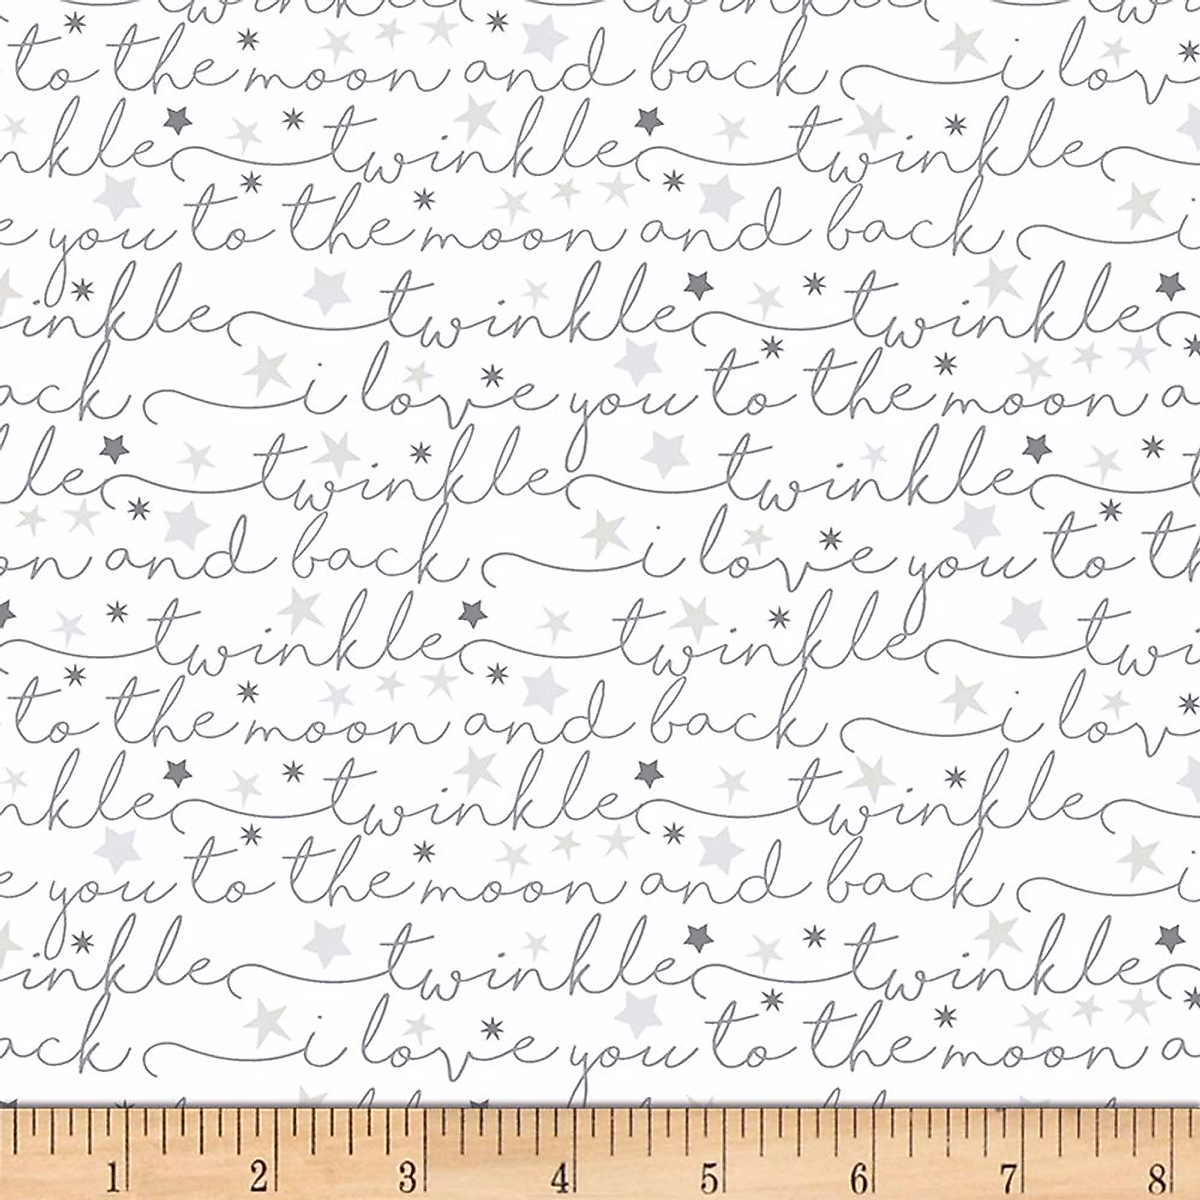 to the moon and back i lov
nkle twinkle twinkle
e you to the moon and back i
inkle twinkle twinkle
ack i love you to the moon a
le twinkle twinkle t
on and back i love you to th
twinkle twinkle twi
to the moon and back i lov
nkle twinkle twinkle
e you to the moon and back i
inkle twinkle twinkle
ack i love you to the moon a
1 2 3 4 5 6 7 8